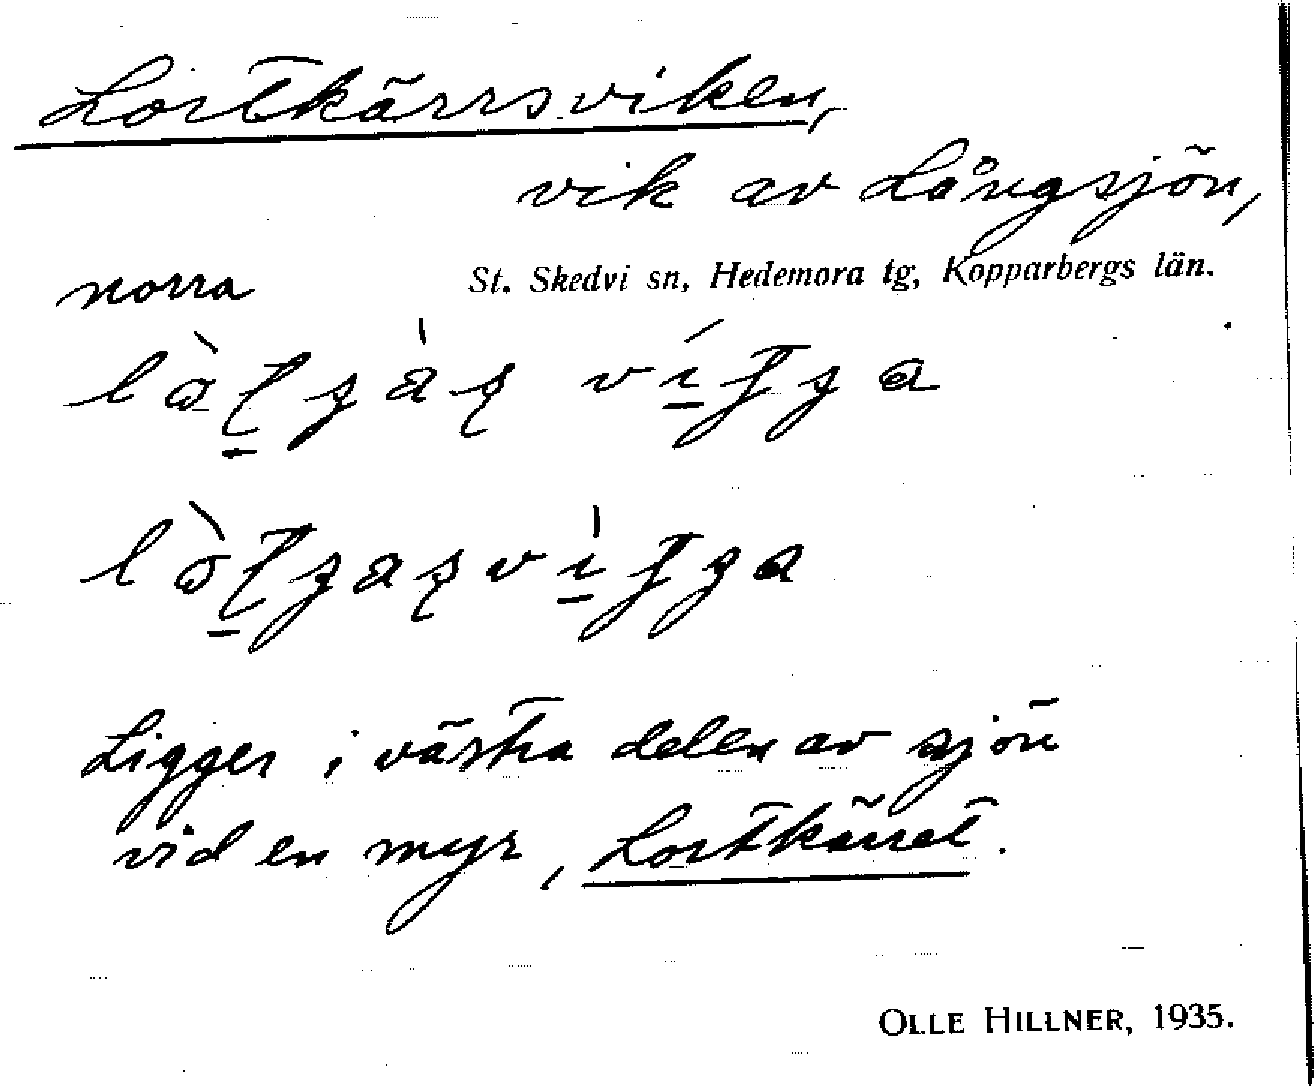 Lortkärrsviken,
vik av Långsjön,
norra St. Skedvi sn, Hedemora tg, Kopparbergs län.
Ligger i västra delen av sjön
vid en myr, Lortkärret.
OLLE HILLNER, 1935.